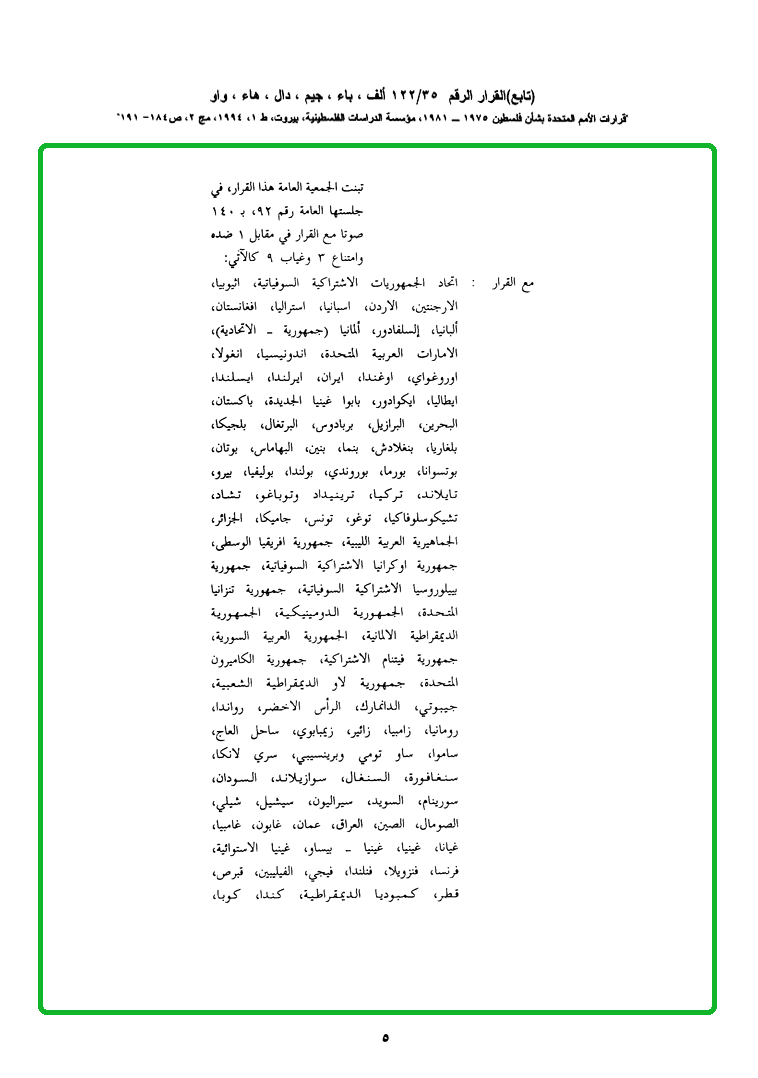 (تابع)القرار الرقم ١٢٢/٣٥ ألف ، باء ، جيم ، دال ، هاء ، واو
"قرارات الأمم المتحدة بشأن فلسطين ١٩٧٥ ــ ١٩٨١، مؤسسة الدراسات الفلسطينية، بيروت، ط ١، ١٩٩٤، مج ٢، ص١٨٤- ١٩١"
تبنت الجمعية العامة هذا القرار، في
جلستها العامة رقم ٩٢، بـ ١٤٠
صوتا مع القرار في مقابل ١ ضده
وامتناع ٣ وغياب ٩ كالآتي:
مع القرار : اتحاد الجمهوريات الاشتراكية السوفياتية، اثيوبيا،
الارجنتين، الاردن، اسبانيا، استراليا، افغانستان،
ألبانيا، إلسلفادور، ألمانيا (جمهورية ــ الاتحادية)،
الامارات العربية المتحدة، اندونيسيا، انغولا،
اوروغواي، اوغندا، ايران، ايرلندا، ايسلندا،
ايطاليا، ايكوادور، بابوا غينيا الجديدة، باكستان،
البحرين، البرازيل، بربادوس، البرتغال، بلجيكا،
بلغاريا، بنغلادش، بنما، بنين، البهاماس، بوتان،
بوتسوانا، بورما، بوروندي، بولندا، بوليفيا، بيرو،
تايلاند، تركيا، ترينيداد وتوباغو، تشاد،
تشيكوسلوفاكيا، توغو، تونس، جاميكا، الجزائر،
الجماهيرية العربية الليبية، جمهورية افريقيا الوسطى،
جمهورية اوكرانيا الاشتراكية السوفياتية، جمهورية
بييلوروسيا الاشتراكية السوفياتية، جمهورية تنزانيا
المتحدة، الجمهورية الدومينيكية، الجمهورية
الديمقراطية الالمانية، الجمهورية العربية السورية،
جمهورية فيتنام الاشتراكية، جمهورية الكاميرون
المتحدة، جمهورية لاو الديمقراطية الشعبية،
جيبوتي، الدانمارك، الرأس الاخضر، رواندا،
رومانيا، زامبيا، زائير، زيمبابوي، ساحل العاج،
ساموا، ساو تومي وبرينسيبي، سري لانكا،
سنغافورة، السنغال، سوازيلاند، السودان،
سورينام، السويد، سيراليون، سيشيل، شيلي،
الصومال، الصين، العراق، عمان، غابون، غامبيا،
غيانا، غينيا، غينيا ــ بيساو، غينيا الاستوائية،
فرنسا، فنزويلا، فنلندا، فيجي، الفيليبين، قبرص،
قطر، كمبوديا الديمقراطية، كندا، كوبا،
٥